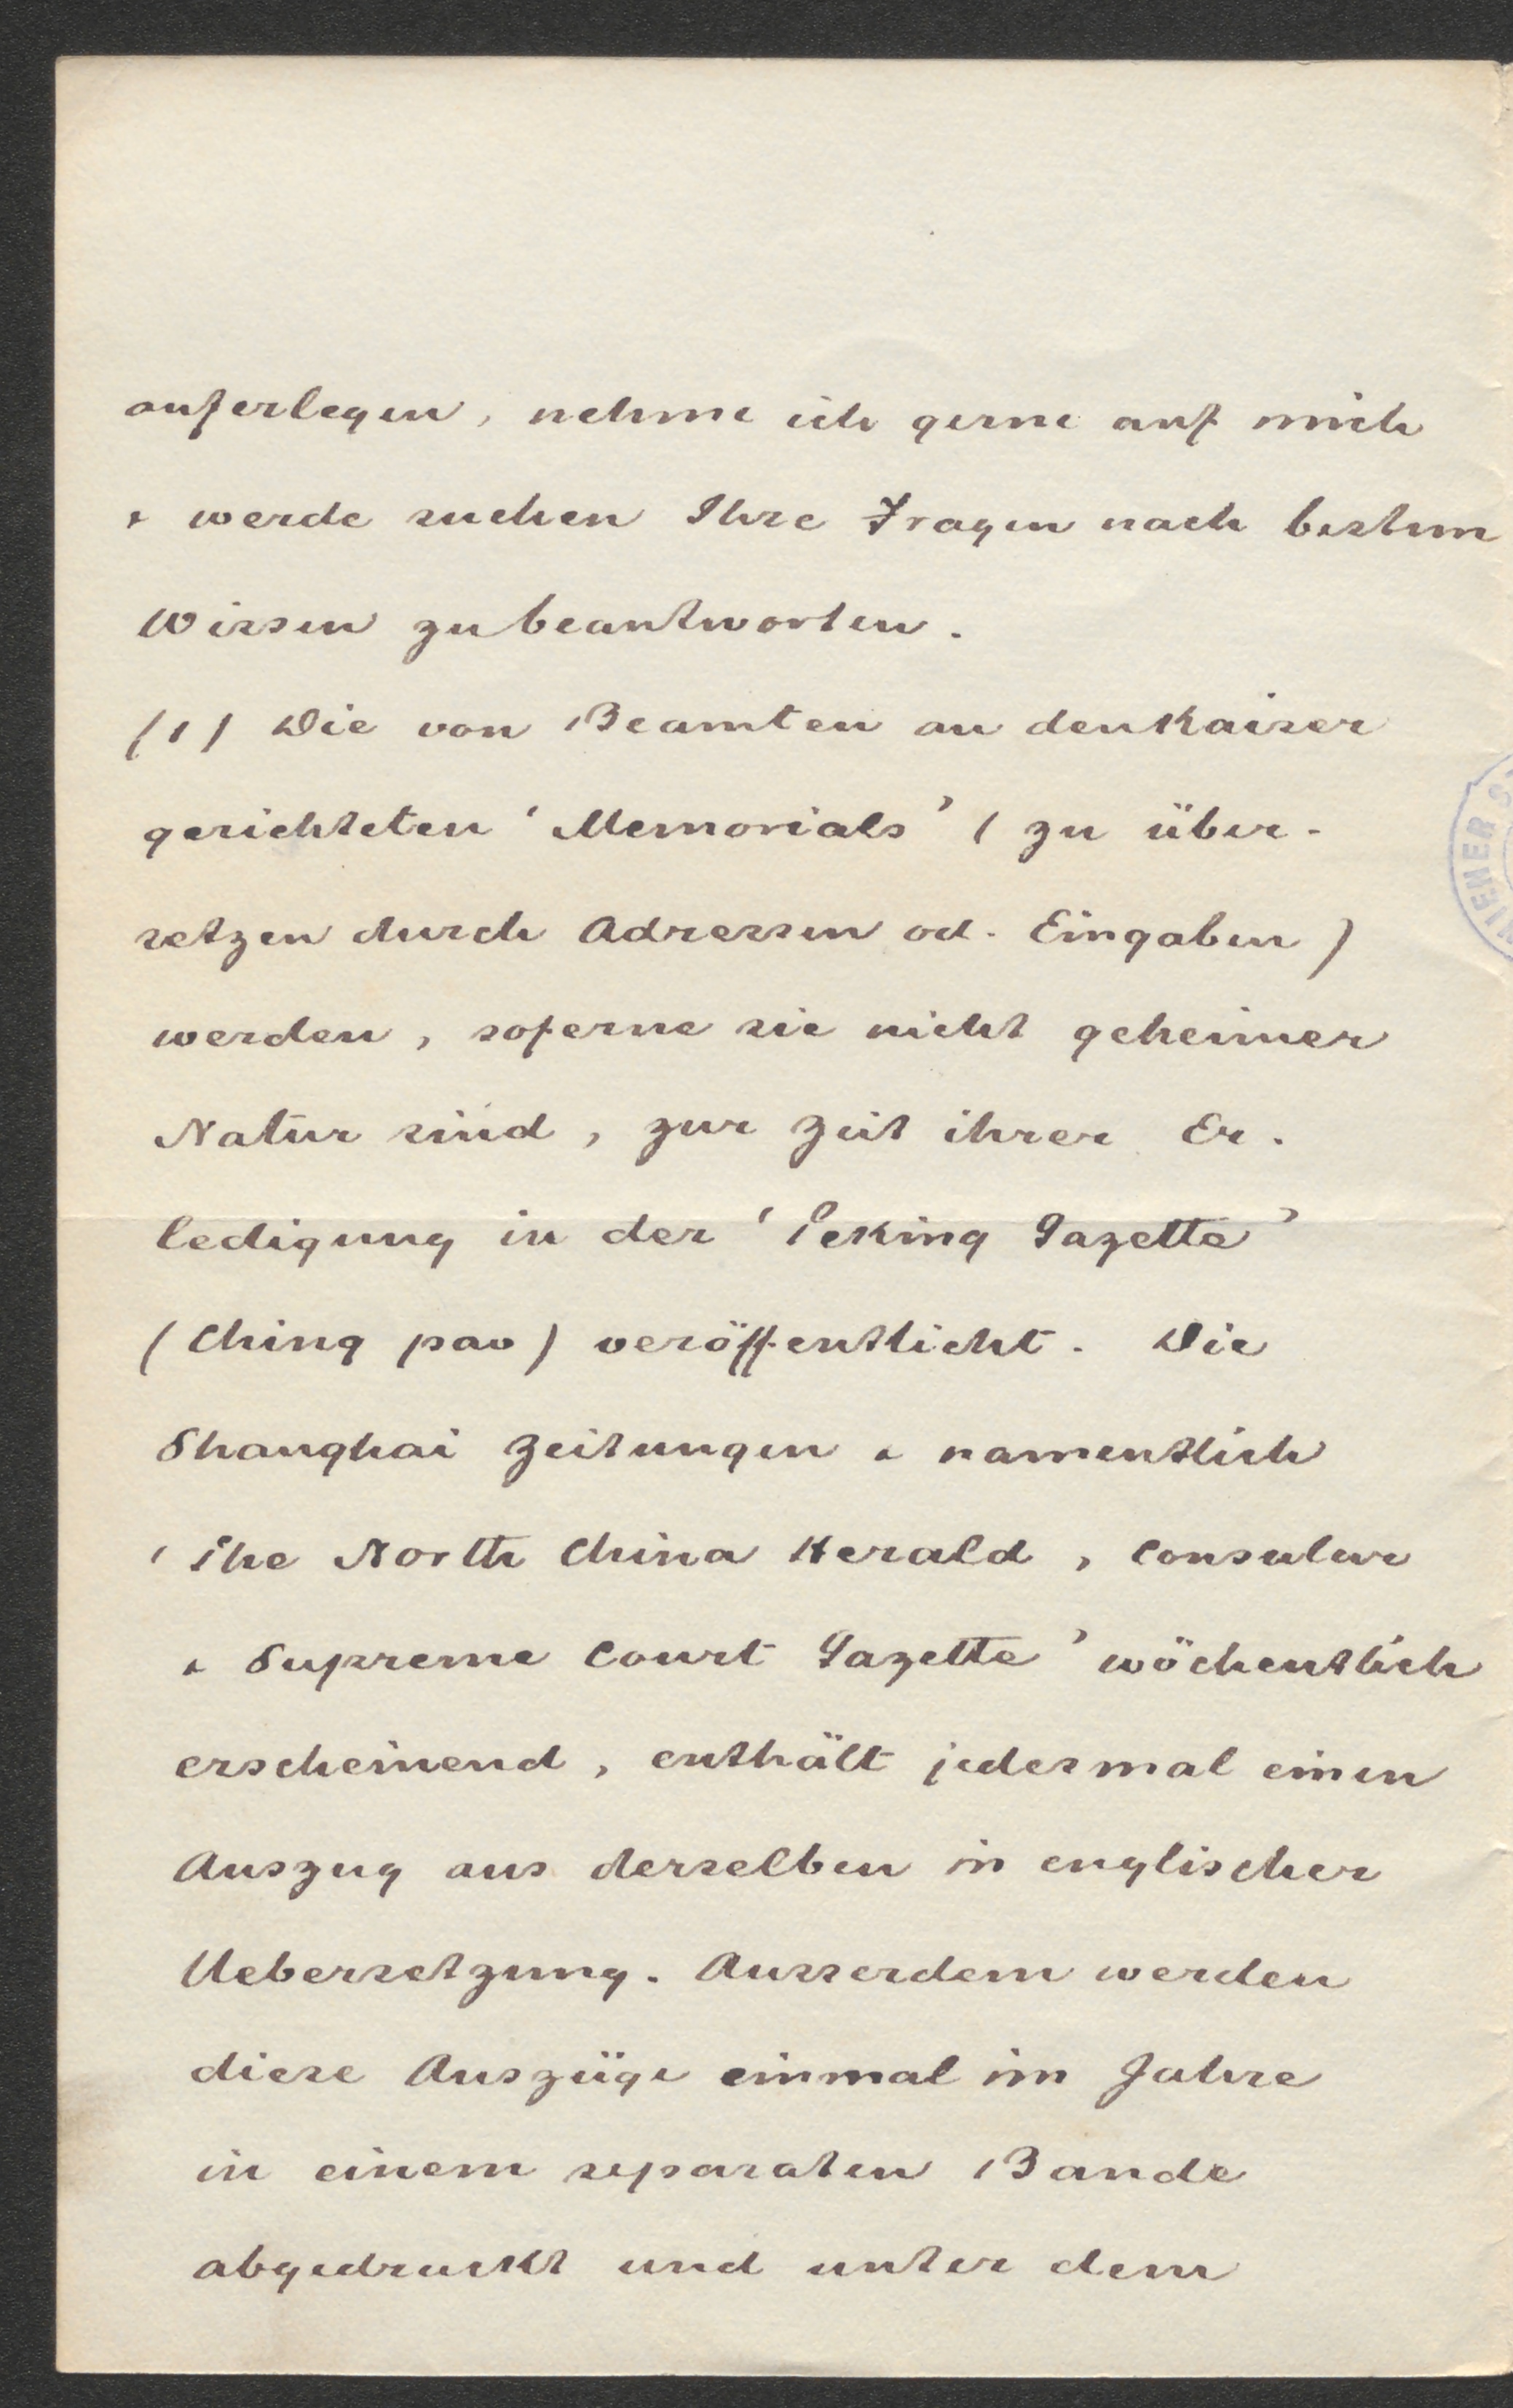 auferlegen, nehme ich gerne auf mich
& werde suchen Ihre Fragen nach bestem
Wissen zu beantworten.
(1) Die von Beamten an den Kaiser
gerichteten 'Memorials' (zu über-
setzen durch Adressen od. Eingaben)
werden, soferne sie nicht geheimer
Natur sind, zur Zeit ihrer Er-
ledigung in der 'Peking Gazette'
(Ching pao) veröffentlicht. Die
Shanghai Zeitungen & namentlich
'The North China Herald, Consular
& Supreme Court Gazette' wöchentlich
erscheinend, enthält jedesmal einen
Auszug aus derselben in englischer
Uebersetzung. Ausserdem werden
diese Auszüge einmal im Jahre
in einem separaten Bande
abgedruckt und unter dem